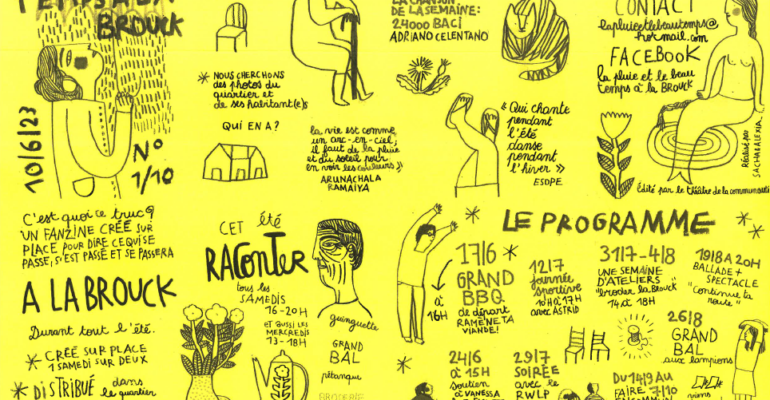 TEMPS A LA
BROUCK
10/6/23
N°
1/10
* NOUS CHERCHONS
des photos du
quartier et
de ses habitant(e)s
QUI EN A ?
LA CHANSON
DE LA SEMAINE:
24000 BACI
ADRIANO CELENTANO
la vie est comme
un arc-en-ciel;
il faut de la pluie
et du soleil pour
en voir les couleurs
ARUNACHALA
RAMAIYA
« Qui chante
pendant
l'été
danse
pendant
l'hiver »
ESOPE
CONTACT
lapluieetlebeautemps@
hotmail.com
FACEBOOK
la pluie et le beau
temps à la BROUCK
Réalisé par
SACHAALEXIA.
Édité par le théâtre de la communauté
C'est quoi ce truc?
UN FANZINE CRÉÉ SUR
PLACE POUR DIRE CE QUI SE
PASSE, S'EST PASSÉ ET SE PASSERA
A LA BROUCK
Durant tout l'été.
* CRÉÉ SUR PLACE
1 SAMEDI SUR DEUX
* DISTRIBUÉ dans
le quartier
CET été
RACONTER
tous les
SAMEDIS
16-20H
ET AUSSI LES
MERCREDIS
13-18H
guinguette
GRAND
BAL
pétanque
BRODERIE
LE PROGRAMME
17/6 *
GRAND
BBQ
de départ
RAMÈNE TA
VIANDE!
à
16H
12/7
journée
sportive
10H à 17H
avec ASTRID
31/7-4/8
UNE SEMAINE
D'ATELIERS
"broder la Brouck"
14 à 18H
19/8 A 20H
BALLADE +
SPECTACLE
"Continue ta
route"
26/8
GRAND
BAL
aux lampions
24/6
à 15H
Soutien
à VANESSA
29/7
SOIRÉE
avec le
RWLP
DU 14/9 AU
FAIRE 7/10